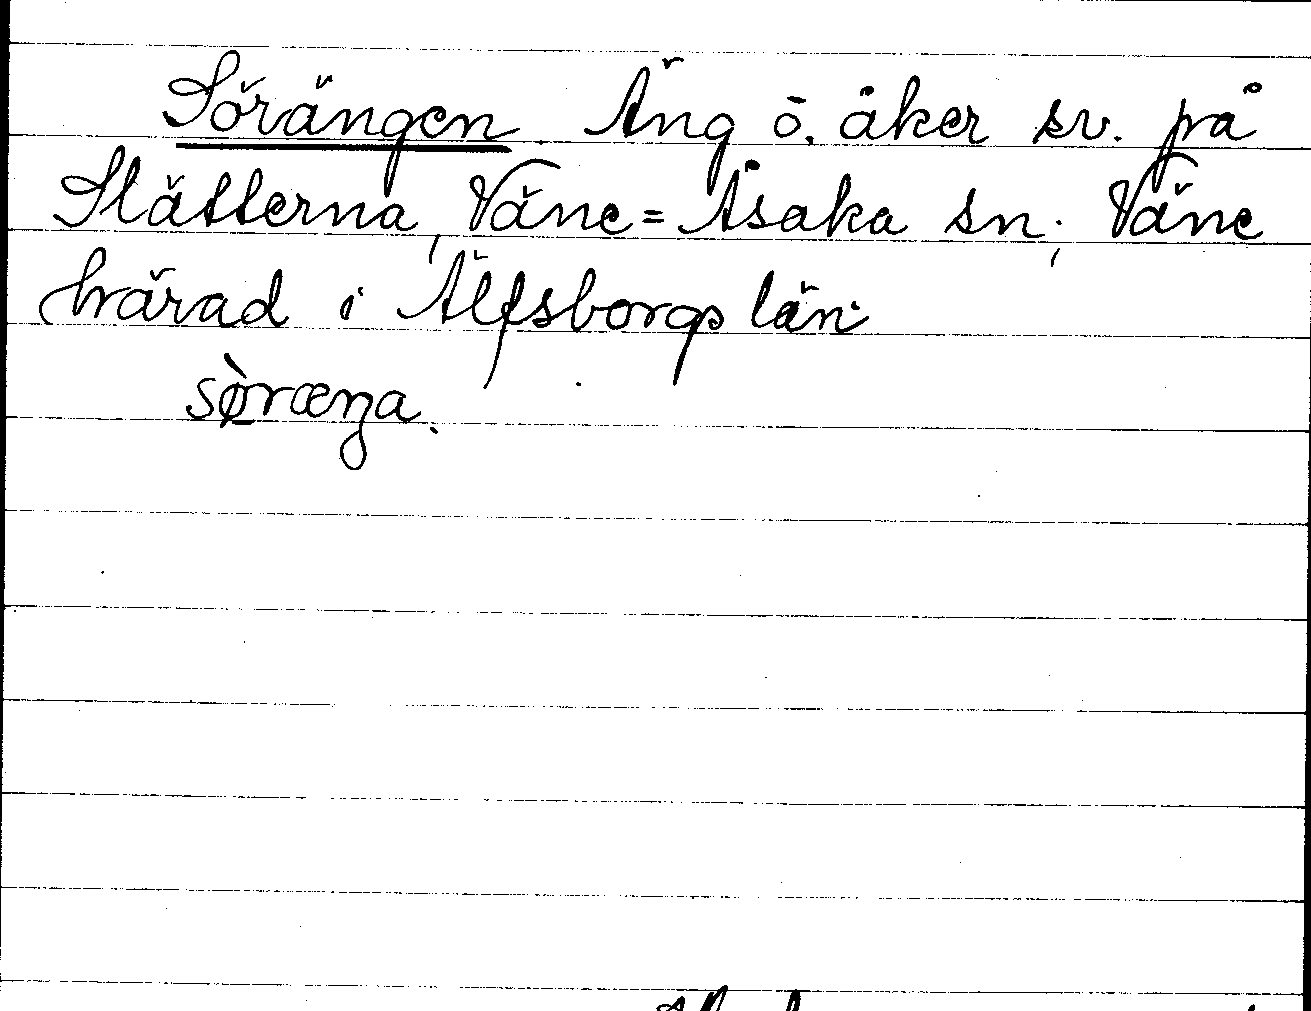 Sörängen Äng o. åker sv. på
Slätterna, Väne=Åsaka sn., Väne
härad i Älfsborgs län.
sø̀ræŋa.